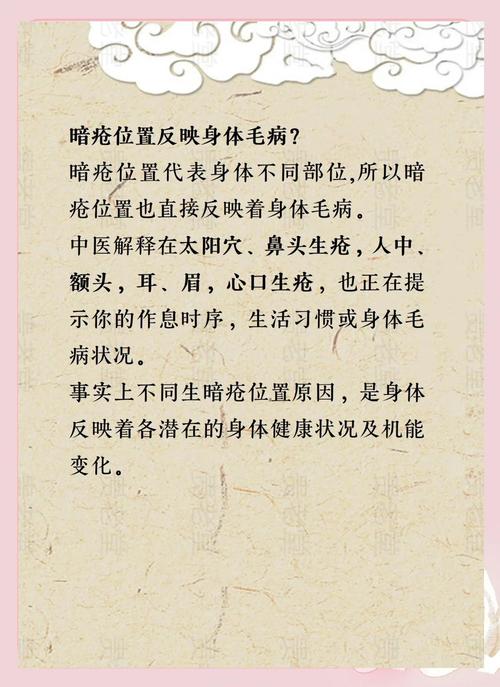 暗疮位置反映身体毛病？
暗疮位置代表身体不同部位,所以暗
疮位置也直接反映着身体毛病。
中医解释在太阳穴、鼻头生疮，人中、
额头，耳、眉，心口生疮，也正在提
示你的作息时序，生活习惯或身体毛
病状况。
事实上不同生暗疮位置原因，是身体
反映着各潜在的身体健康状况及机能
变化。